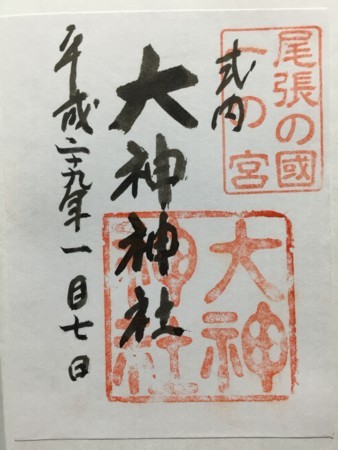 尾張の國
一の宮
式内
大神神社
大神
神社
平成二十九年一月七日